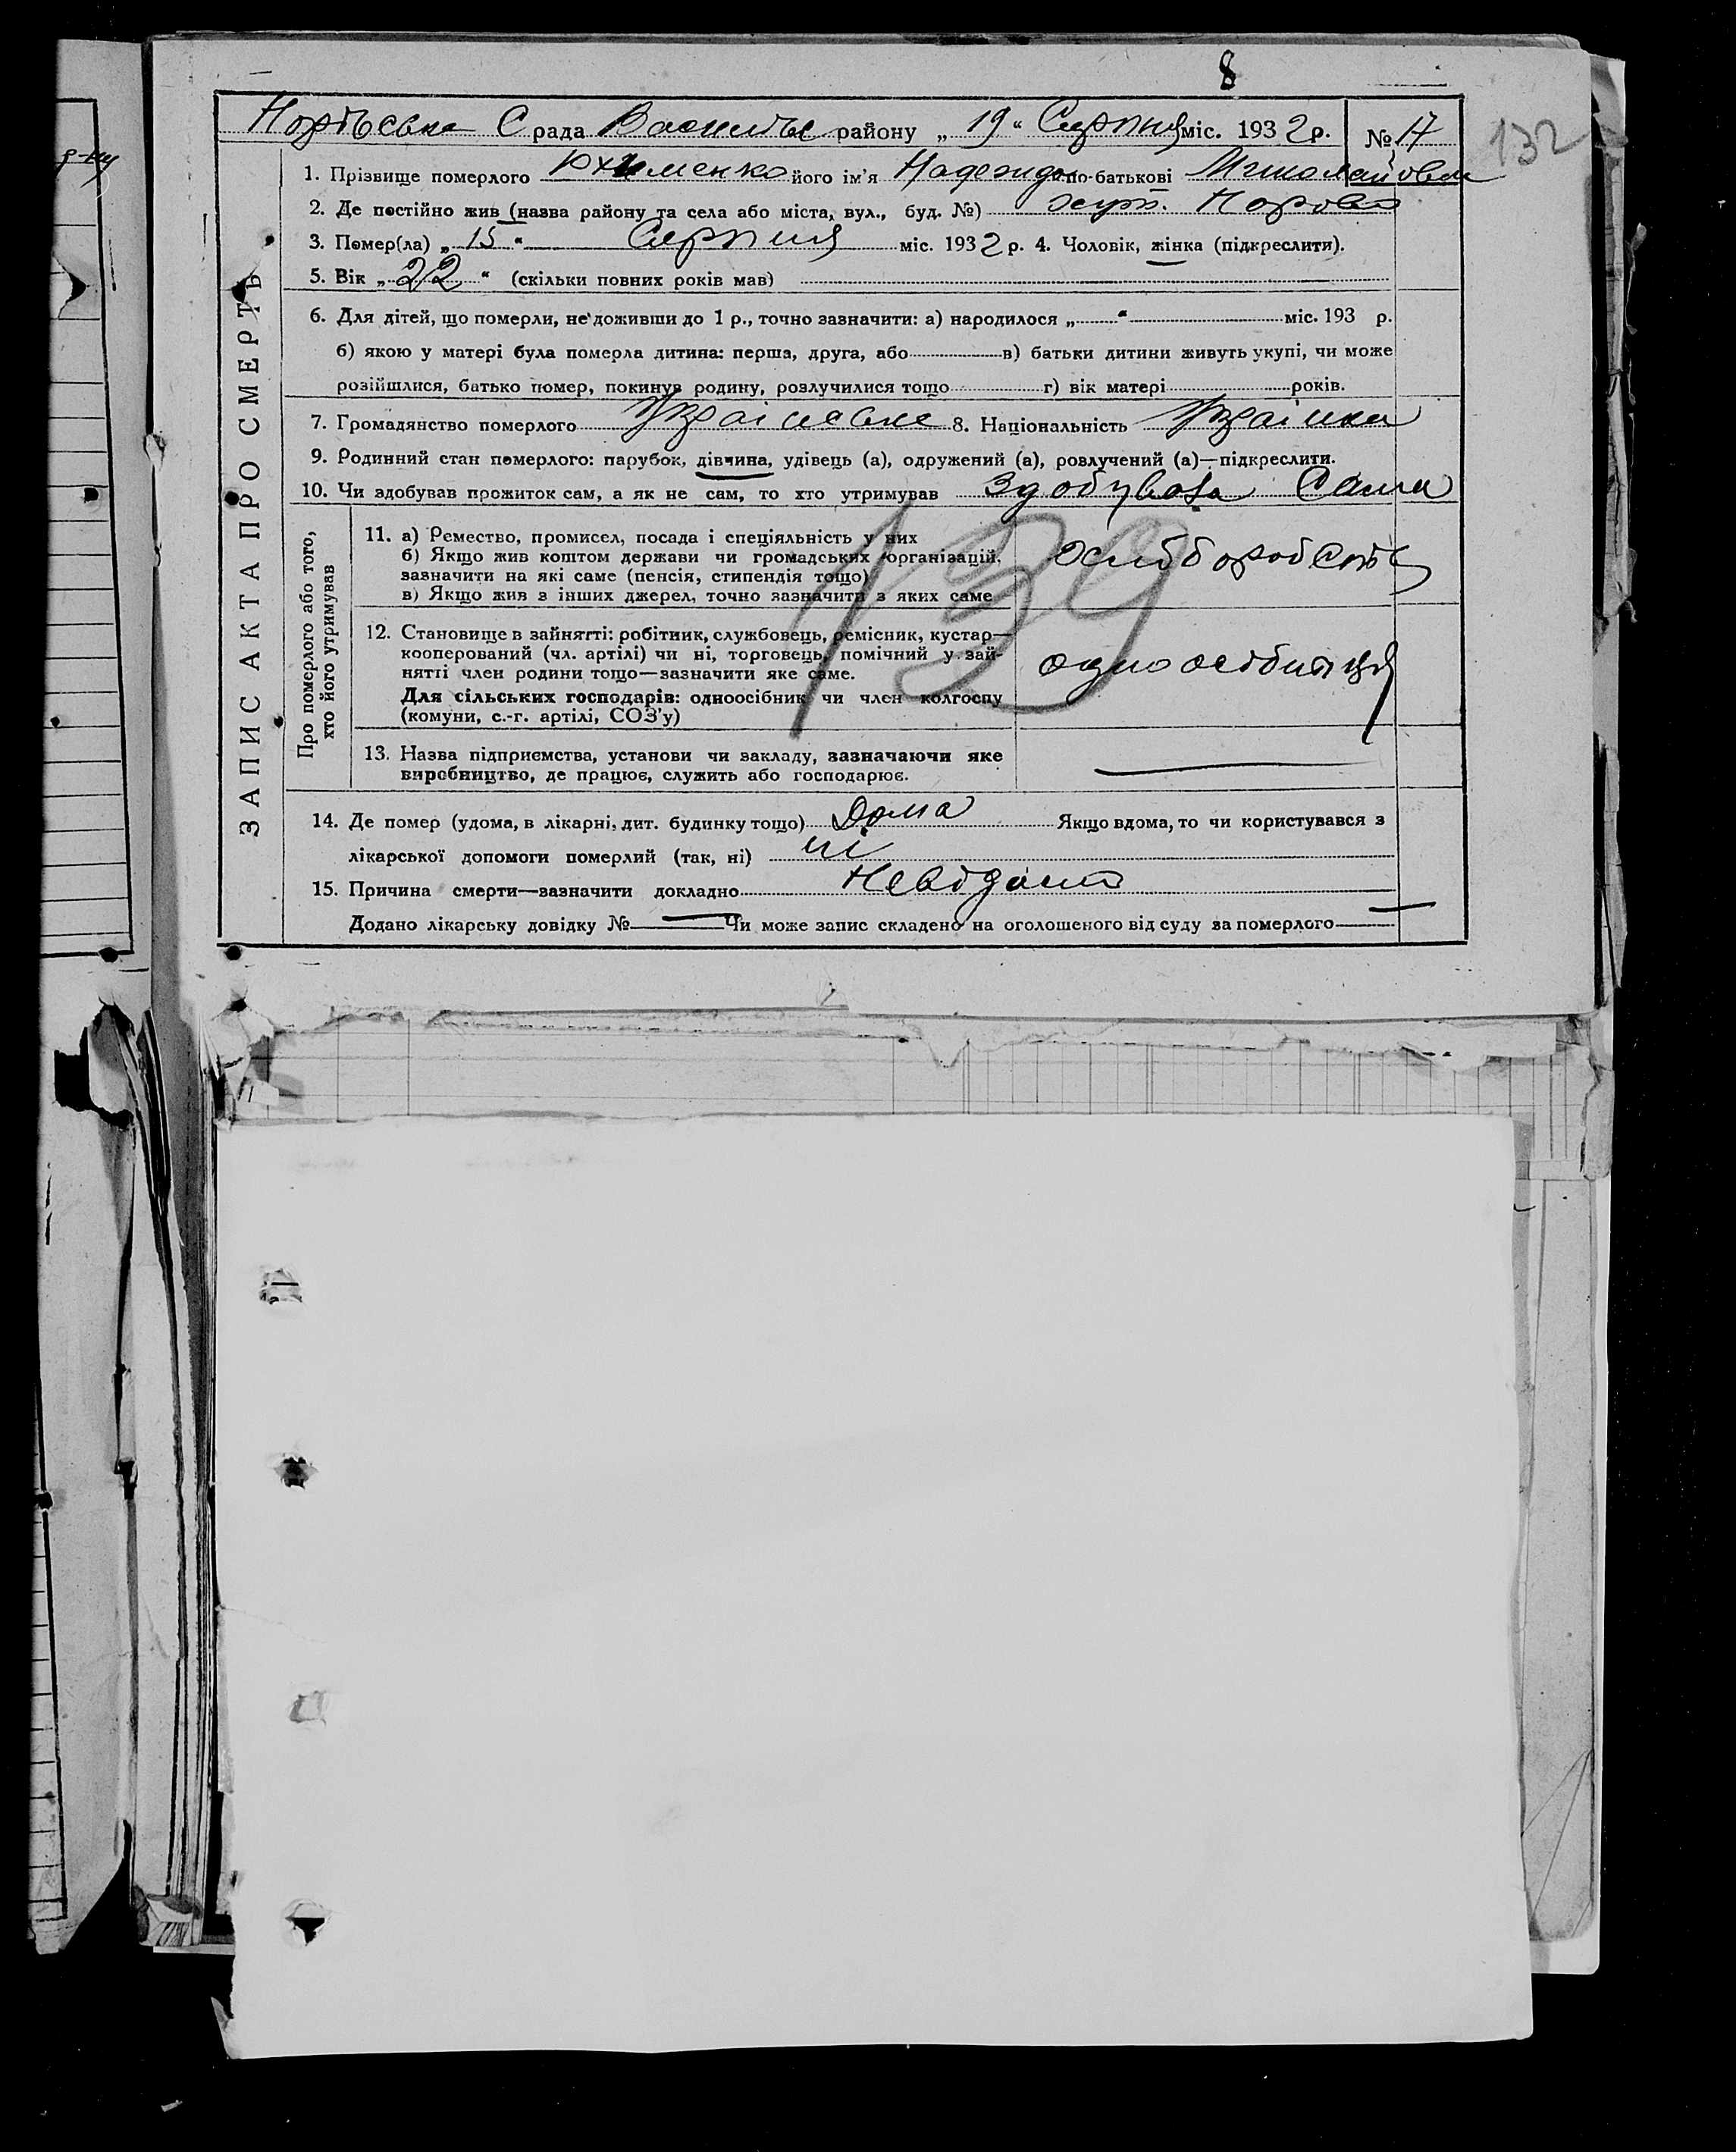 8
С рада району „ 19 “ Серпня міс. 1932 р. № 17
132
1. Прізвище померлого Юхименко його ім'я Надежда по-батькові Миколайовна
2. Де постійно жив (назва району та села або міста, вул., буд. №) хут.
3. Помер(ла) „ 15 “ Серпня міс. 1932 р. 4. Чоловік, жінка (підкреслити).
5. Вік „ 22 “ (скільки повних років мав)
6. Для дітей, що померли, не доживши до 1 р., точно зазначити: а) народилося „ “ міс. 193 р.
б) якою у матері була померла дитина: перша, друга, або в) батьки дитини живуть укупі, чи може
розійшлися, батько помер, покинув родину, розлучилися тощо г) вік матері років.
7. Громадянство померлого Українське 8. Національність Українка
9. Родинний стан померлого: парубок, дівчина, удівець (а), одружений (а), розлучений (а)—підкреслити.
10. Чи здобував прожиток сам, а як не сам, то хто утримував Здобувала Сама
ЗАПИС АКТА ПРО СМЕРТЬ
Про померлого або того,
хто його утримував
139
11. а) Ремество, промисел, посада і спеціяльність у них
б) Якщо жив коштом держави чи громадських організацій,
зазначити на які саме (пенсія, стипендія тощо)
в) Якщо жив з інших джерел, точно зазначити з яких саме
12. Становище в зайнятті: робітник, службовець, ремісник, кустар—
кооперований (чл. артілі) чи ні, торговець, помічний у зай-
нятті член родини тощо—зазначити яке саме.
Для сільських господарів: одноосібник чи член колгоспу
(комуни, с.-г. артілі, СОЗ'у)
одноосібниця
13. Назва підприємства, установи чи закладу, зазначаючи яке
виробництво, де працює, служить або господарює.
14. Де помер (удома, в лікарні, дит. будинку тощо) Дома Якщо вдома, то чи користувався з
лікарської допомоги померлий (так, ні) ні
15. Причина смерти—зазначити докладно Невідомо
Додано лікарську довідку № — Чи може запис складено на оголошеного від суду за померлого —